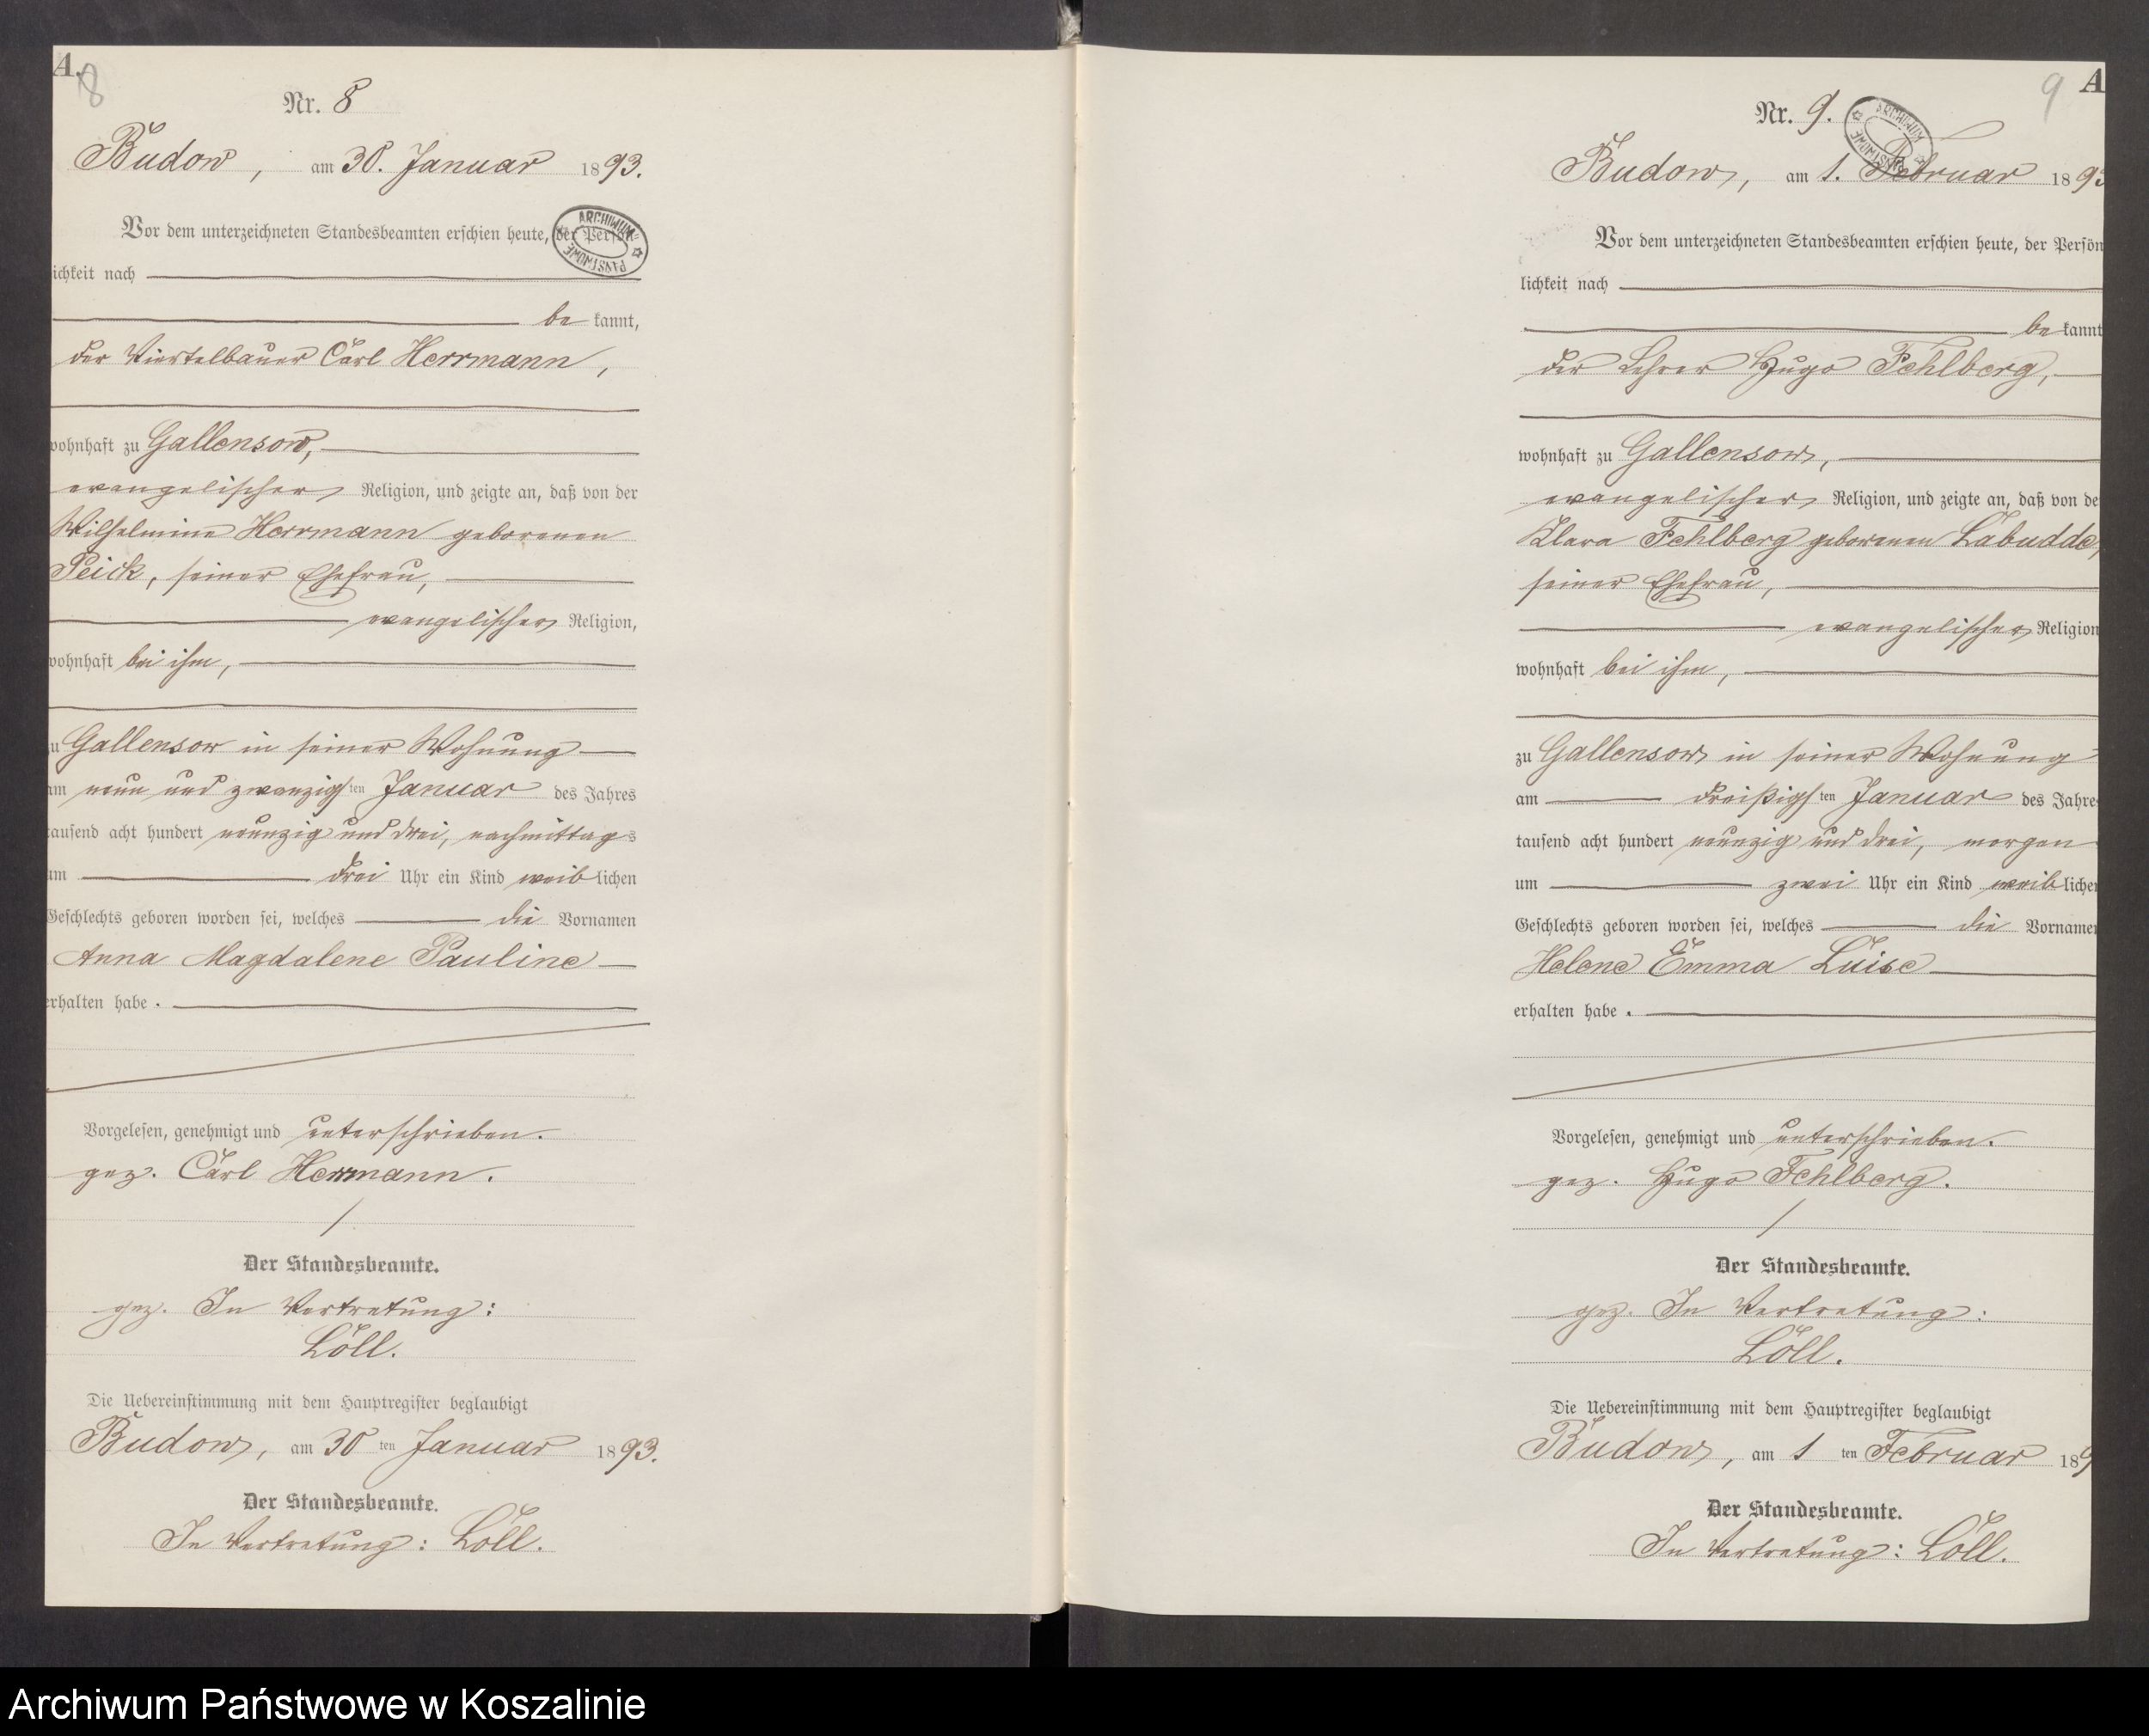 A.
8
Nr. 8
Budow, am 30. Januar 1893.
Vor dem unterzeichneten Standesbeamten erschien heute, der Persön-
ichkeit nach
be kannt,
der Viertelbauer Carl Herrmann,
wohnhaft zu Gallensow,
evangelischer Religion, und zeigte an, daß von der
Wilhelmine Herrmann geborenen
Peick, seiner Ehefrau,
evangelischer Religion,
wohnhaft bei ihm,
zu Gallensow in seiner Wohnung
am neun und zwanzigsten Januar des Jahres
tausend acht hundert neunzig und drei, nachmittags
um drei Uhr ein Kind weiblichen
Geschlechts geboren worden sei, welches die Vornamen
Anna Magdalene Pauline
erhalten habe.
Vorgelesen, genehmigt und unterschrieben.
gez. Carl Herrmann.
Der Standesbeamte.
gez. In Vertretung:
Löll.
Die Uebereinstimmung mit dem Hauptregister beglaubigt
Budow, am 30 ten Januar 1893.
Der Standesbeamte.
In Vertretung: Löll.
ARCHIWUM PAŃSTWOWE
9
A
Nr. 9.
Budow, am 1. Februar 1893
Vor dem unterzeichneten Standesbeamten erschien heute, der Persön
lichkeit nach
be kannt
der Lehrer Hugo Fehlberg,
wohnhaft zu Gallensow,
evangelischer Religion, und zeigte an, daß von de
Klara Fehlberg geborenen Labudde,
seiner Ehefrau,
evangelischer Religion
wohnhaft bei ihm,
zu Gallensow in seiner Wohnung
am dreißigsten Januar des Jahres
tausend acht hundert neunzig und drei, morgen
um zwei Uhr ein Kind weiblichen
Geschlechts geboren worden sei, welches die Vornamen
Helene Emma Luise
erhalten habe.
Vorgelesen, genehmigt und unterschrieben.
gez. Hugo Fehlberg.
Der Standesbeamte.
gez. In Vertretung:
Löll.
Die Uebereinstimmung mit dem Hauptregister beglaubigt
Budow, am 1 ten Februar 189
Der Standesbeamte.
In Vertretung: Löll.
ARCHIWUM PAŃSTWOWE
Archiwum Państwowe w Koszalinie